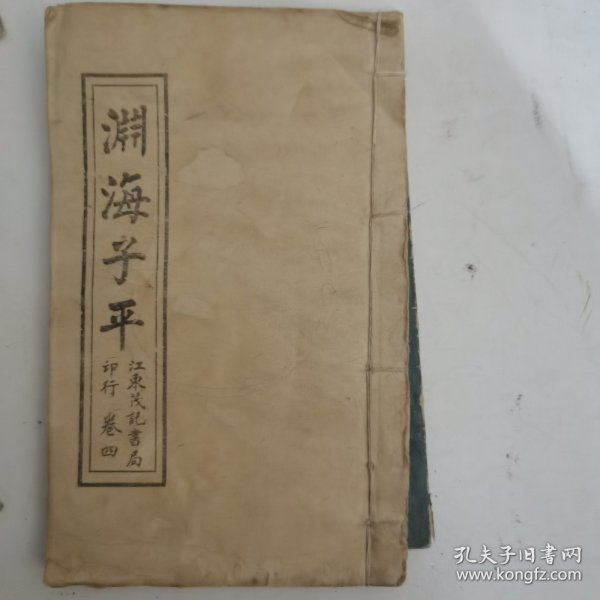 淵海子平
江東茂記書局
印行 卷四
孔夫子旧書网
www.kongfz.com